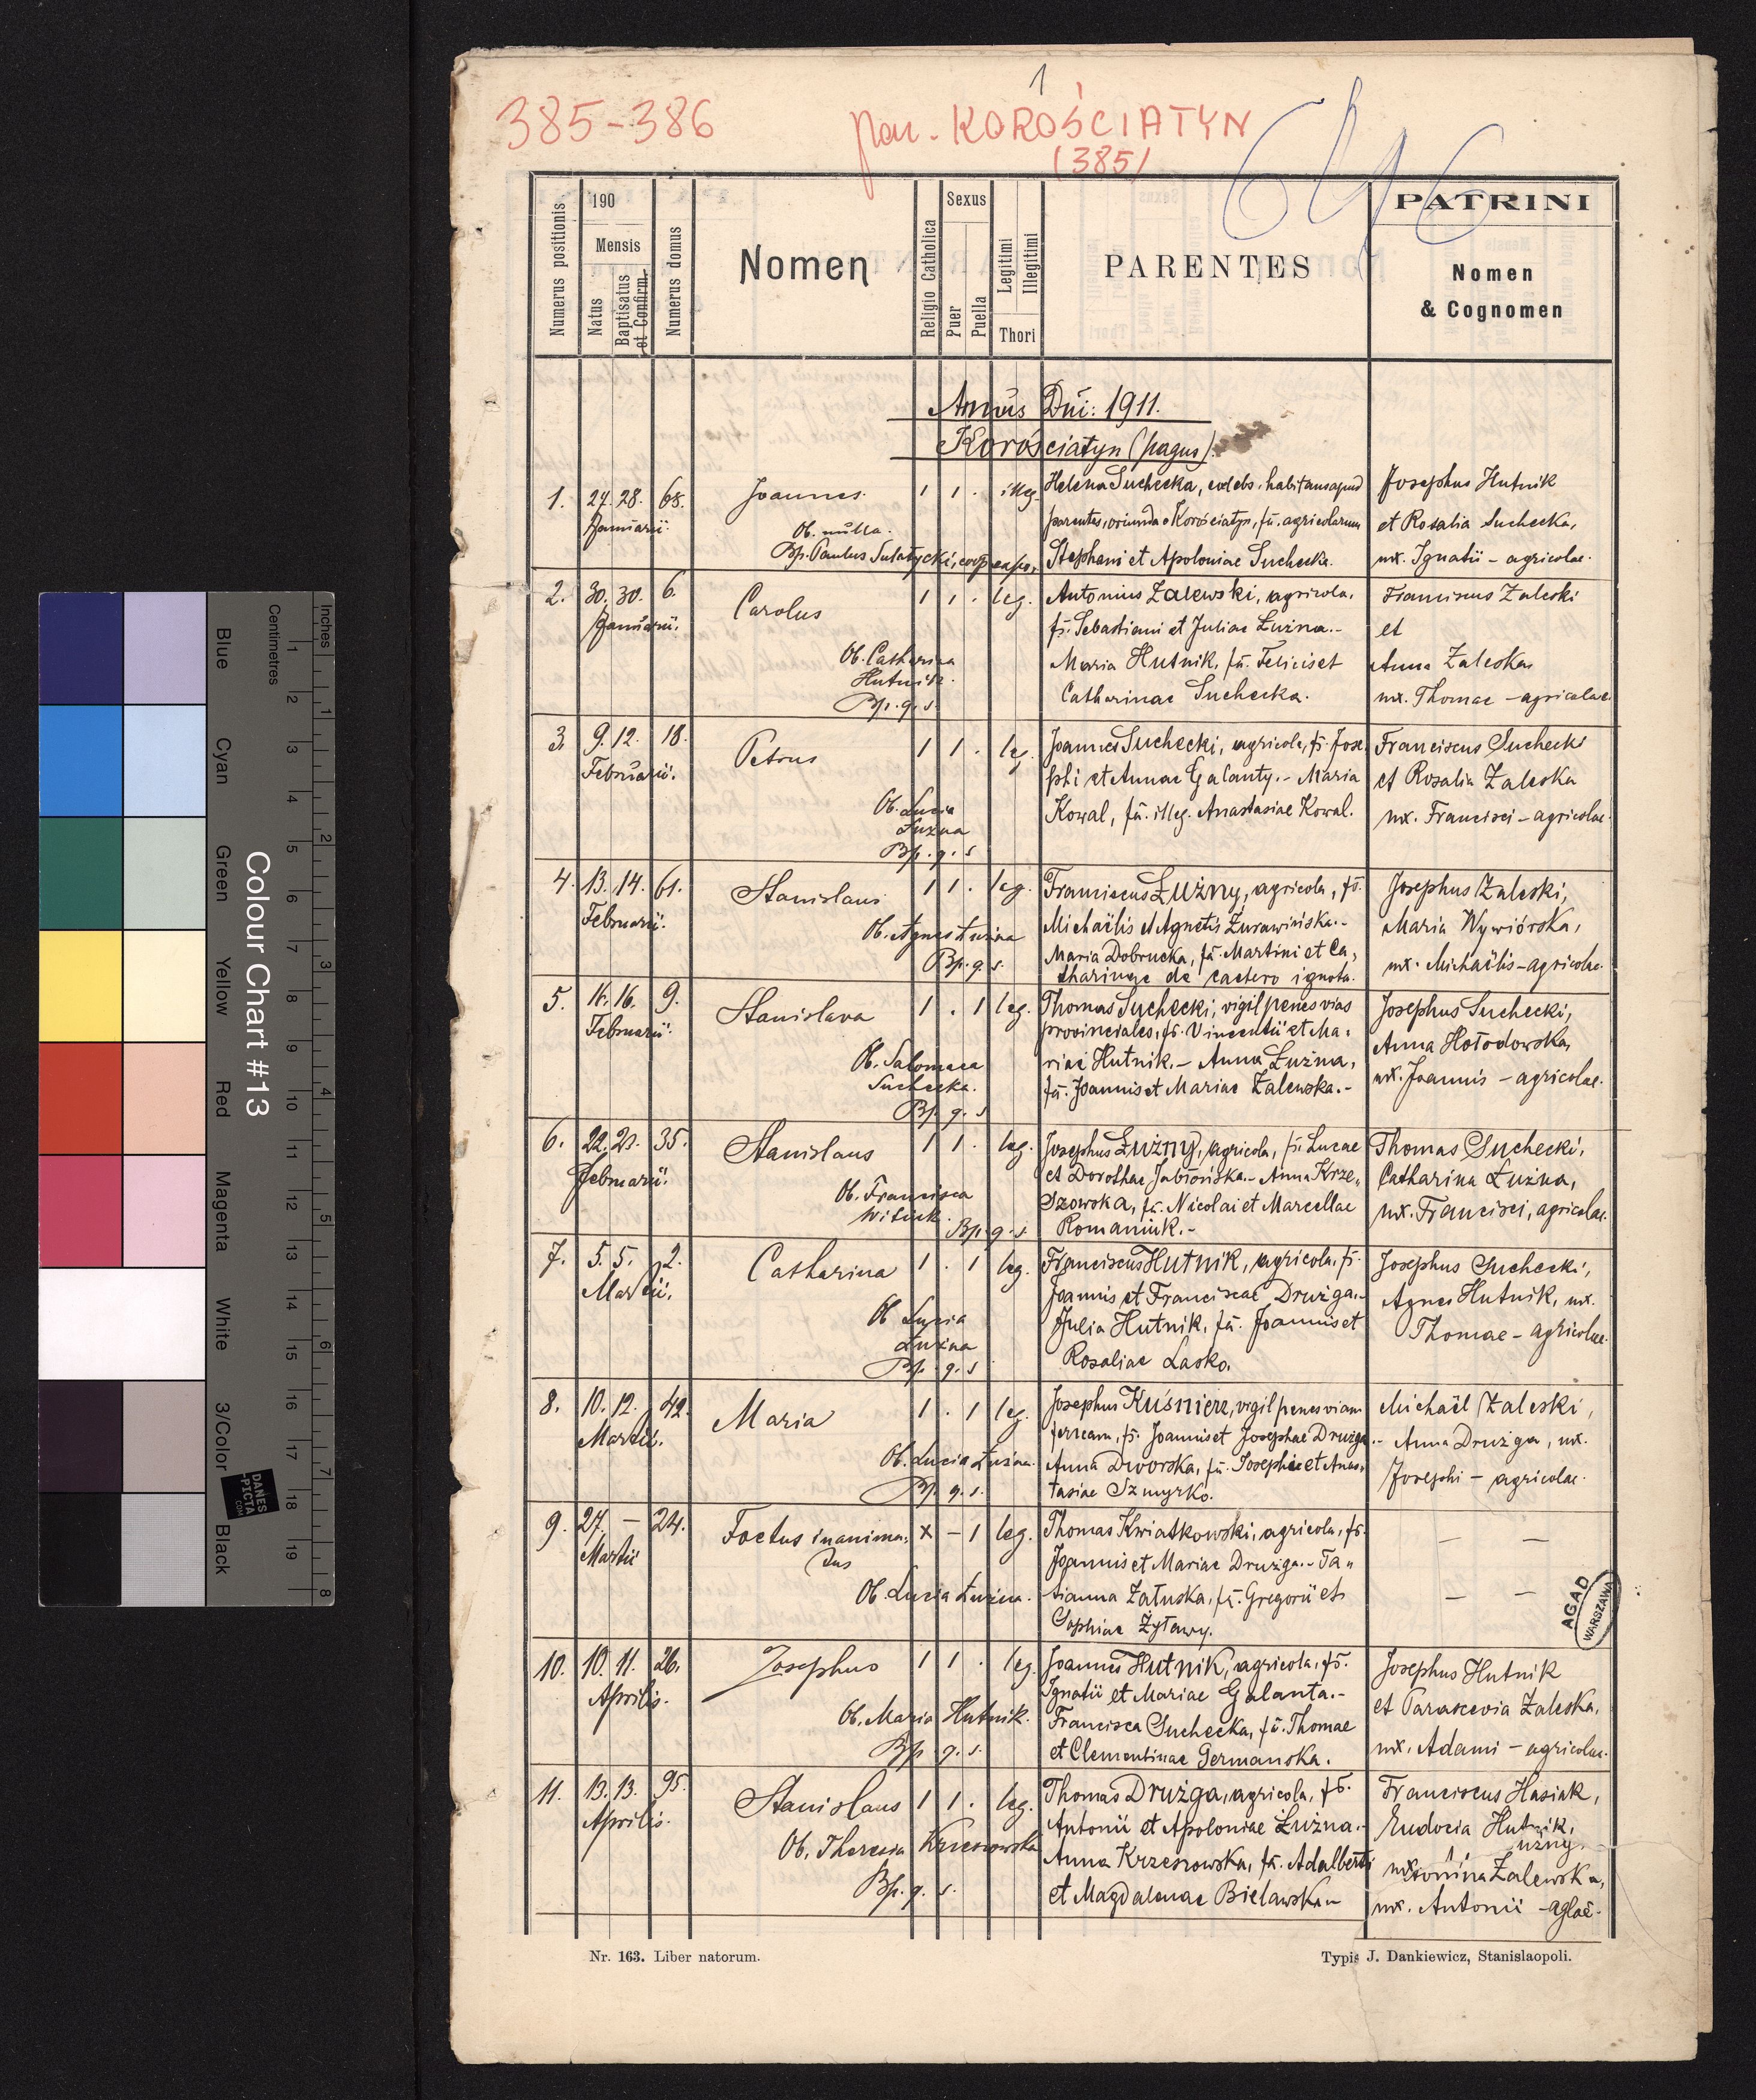 1
385-386
par. KOROŚCIATYN
(385)
Numerus positionis
190
Mensis
Natus
Baptisatus
et Confirm.
Numerus domus
Nomen
Religio Catholica
Sexus
Puer
Puella
Legitimi
Illegitimi
Thori
PARENTES
PATRINI
Nomen
& Cognomen
Annus Dni: 1911.
Korościatyn (pagus)
1. 27. 28. 68. Joannes 1 1 . illeg.
Januarii.
Ob. nulla.
Bp. Paulus Sulatycki, coop. expos.
Helena Suchecka, coelebs. habitans apud
parentes, oriunda e Korościatyn, fa. agricolarum
Stephani et Apoloniae Suchecka.
Josephus Hutnik
et Rosalia Suchecka,
ux. Ignatii - agricolae.
2. 30. 30. 6. Carolus 1 1 . leg.
Januarii.
Ob. Catharina
Hutnik.
Bp. q. s.
Antonius Zalewski, agricola,
fs. Sebastiani et Juliae Łużna.-
Maria Hutnik, fa. Felicis et
Catharinae Suchecka.
Franciscus Zaleski
et
Anna Zaleska
ux. Thomae - agricolae
3. 9. 12. 18. Petrus 1 1 . leg.
Februarii.
Ob. Lucia
Łużna
Bp. q. s
Joannes Suchecki, agricola, fs. Jose
phi et Annae Galanty.- Maria
Kowal, fa. illeg. Anastasiae Kowal.
Franciscus Suchecki
et Rosalia Zaleska
ux. Francisci - agricolae.
4. 13. 14. 61. Stanislaus 1 1 . leg.
Februarii.
Ob. Agnes Łużna
Bp. q. s.
Franciscus Łużny, agricola, fs.
Michaëlis et Agnetis Żurawińska.-
Maria Dobrucka, fa. Martini et Ca,
tharinae de caetero ignota.
Josephus Zaleski,
Maria Wywiórska,
ux. Michaëlis - agricolae.
5. 16. 16. 9. Stanislava 1 . 1 leg.
Februarii.
Ob. Salomea
Suchecka.
Bp. q. s
Thomas Suchecki, vigil penes vias
provinciales, fs. Vincentii et Ma,
riae Hutnik.- Anna Łużna,
fa. Joannis et Mariae Zalewska.-
Josephus Suchecki,
Anna Hołodowska,
ux. Joannis - agricolae.
6. 22. 23. 35. Stanislaus 1 1 . leg.
Februarii.
Ob. Francisca
Witiuk.
Bp. q. s.
Josephus Łużny, agricola, fs. Lucae
et Dorotheae Jabłońska.- Anna Krze,
szowska, fa. Nicolai et Marcellae
Romaniuk.-
Thomas Suchecki,
Catharina Łużna,
ux. Francisci, agricolae.
7. 5. 5. 2. Catharina 1 . 1 leg.
Martii.
Ob Lucia
Łużna
Bp. q. s
Franciscus Hutnik, agricola, fs.
Joannis et Franciscae Drużga.-
Julia Hutnik, fa. Joannis et
Rosaliae Lasko.
Josephus Suchecki,
Agnes Hutnik, ux.
Thomae - agricolae.
8. 10. 12. 42. Maria 1 . 1 leg.
Martii.
Ob. Lucia Łużna.
Bp. q. s.
Josephus Kuśnierz, vigil penes viam
ferream, fs. Joannis et Josephae Drużga.-
Anna Dworska, fa. Josephi et Anas,
tasiae Szmyrko.
Michaël Zaleski,
Anna Drużga, ux.
Josephi - agricolae.
9. 27. - 24. Foetus inanima, x - 1 leg.
Martii
tus
Ob. Lucia Łużna.
Thomas Kwiatkowski, agricola, fs.
Joannis et Mariae Drużga.- Ta,,
tianna Załuska, fa. Gregorii et
Sophiae Żyławy.
- -
- -
AGAD
WARSZAWA
10. 10. 11. 26. Josephus 1 1 . leg.
Aprilis.
Ob. Maria Hutnik.
Bp. q. s.
Joannes Hutnik, agricola, fs.
Ignatii et Mariae Galanta.-
Francisca Suchecka, fa. Thomae
et Clementinae Germanska.
Josephus Hutnik
et Parascevia Zaleska,
ux. Adami - agricolae.
11. 13. 13. 95. Stanislaus 1 1 . leg.
Aprilis.
Ob. Theresia Krzesowska
Bp. q. s.
Thomas Drużga, agricola, fs.
Antonii et Apoloniae Łużna.-
Anna Krzeszowska, fa. Adalberti
et Magdalenae Bielawska.-
Franciscus Hasiak,
Eudocia Hutnik,
ux. Zalewska,
ux. Antonii - aglae.
Nr. 163. Liber natorum.
Typis J. Dankiewicz, Stanislaopoli.
Inches
Centimetres
1 2 3 4 5 6 7 8
1 2 3 4 5 6 7 8 9 10 11 12 13 14 15 16 17 18 19
Colour Chart #13
Blue
Cyan
Green
Yellow
Red
Magenta
White
3/Color
Black
DANES
-PICTA
.COM